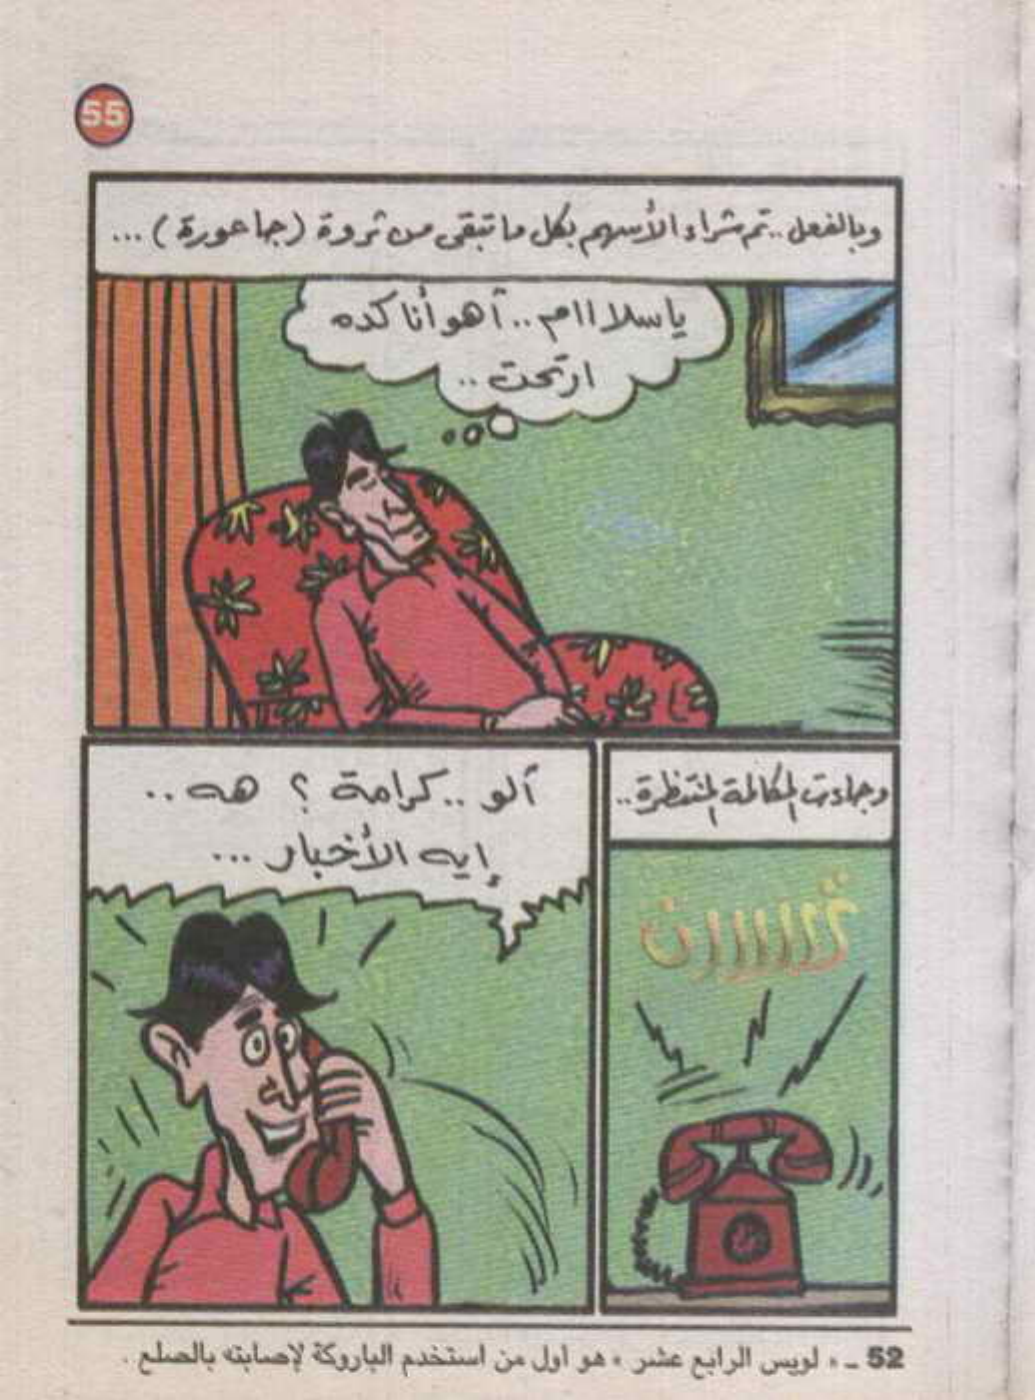 55
وبالفعل.. تم شراء الأسهم بكل ما تبقى من ثروة (جاعورة)...
ياسلااام.. آهو أنا كده
ارتحت..
وجاءت المكالمة المنتظرة..
تررررررن
آلو.. كرامة؟ هه..
إيه الأخبار...
52 ــ « لويس الرابع عشر » هو أول من استخدم الباروكة لإصابته بالصلع .